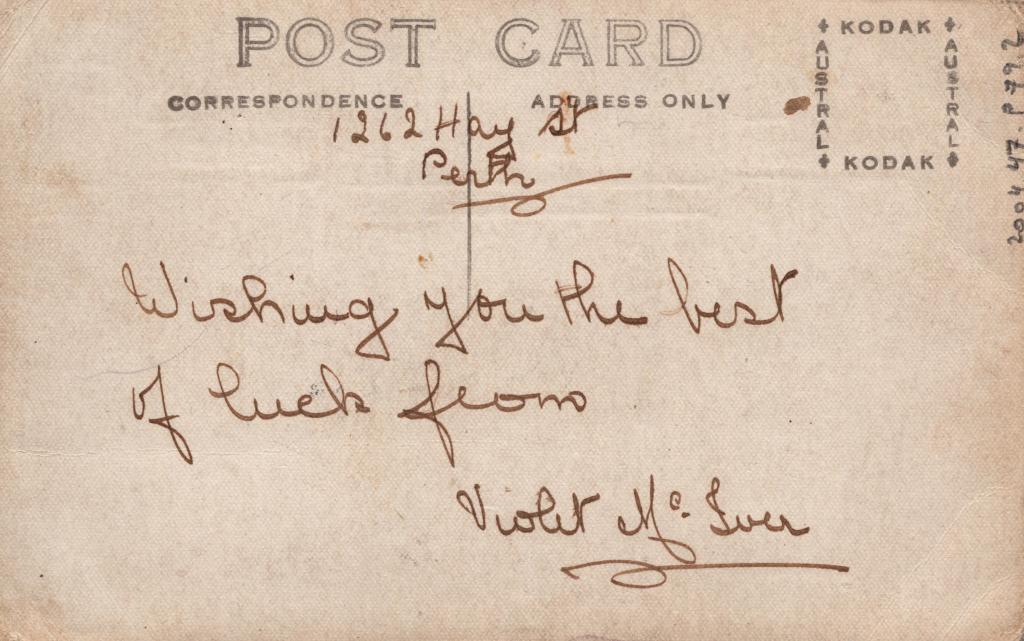 POST CARD
KODAK
AUSTRAL
AUSTRAL
KODAK
CORRESPONDENCE
ADDRESS ONLY
1262 Hay St
Perth
Wishing you the best
of luck from
Violet Mc. Iver
2004 47. P 79 2